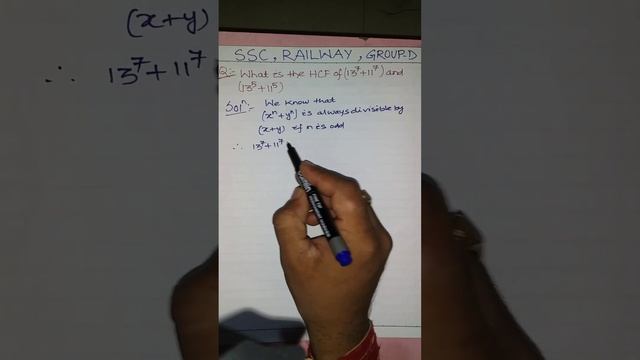 SSC, RAILWAY, GROUP-D
Q:- What is the HCF of (13⁷+11⁷) and
(13⁵+11⁵)
Solⁿ:- We know that
(xⁿ+yⁿ) is always divisible by
(x+y) if n is odd
∴ 13⁷+11⁷